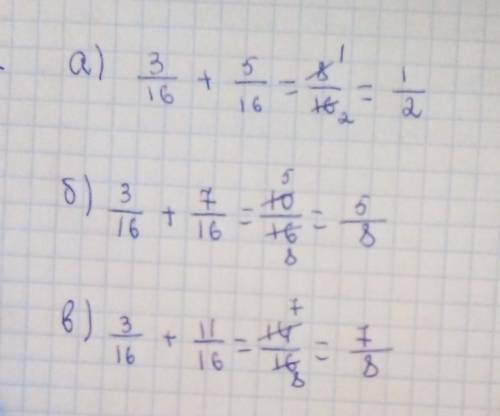 а) 3/16 + 5/16 = 8/16 1 2 = 1/2
б) 3/16 + 7/16 = 10/16 5 8 = 5/8
в) 3/16 + 11/16 = 14/16 7 8 = 7/8